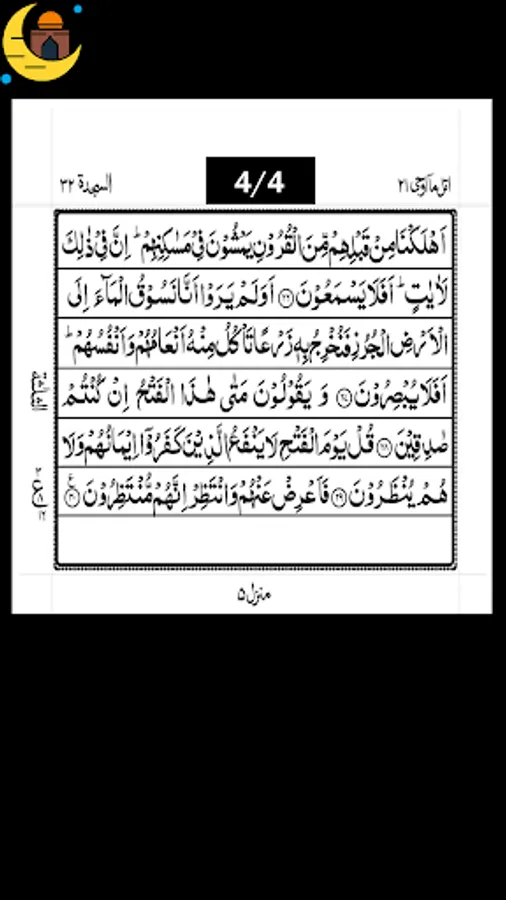 4/4
اتل مآ اوحی ۲۱
السجدة ۳۲
اَهْلَكْنَا مِنْ قَبْلِهِمْ مِّنَ الْقُرُوْنِ يَمْشُوْنَ فِيْ مَسٰكِنِهِمْ ؕ اِنَّ فِيْ ذٰلِكَ
لَاٰيٰتٍ ؕ اَفَلَا يَسْمَعُوْنَ ۝۲۶ اَوَلَمْ يَرَوْا اَنَّا نَسُوْقُ الْمَآءَ اِلَى
الْاَرْضِ الْجُرُزِ فَنُخْرِجُ بِهٖ زَرْعًا تَاْكُلُ مِنْهُ اَنْعَامُهُمْ وَاَنْفُسُهُمْ ؕ
اَفَلَا يُبْصِرُوْنَ ۝۲۷ وَ يَقُوْلُوْنَ مَتٰى هٰذَا الْفَتْحُ اِنْ كُنْتُمْ
صٰدِقِيْنَ ۝۲۸ قُلْ يَوْمَ الْفَتْحِ لَا يَنْفَعُ الَّذِيْنَ كَفَرُوْۤا اِيْمَانُهُمْ وَلَا
هُمْ يُنْظَرُوْنَ ۝۲۹ فَاَعْرِضْ عَنْهُمْ وَانْتَظِرْ اِنَّهُمْ مُّنْتَظِرُوْنَ ۝۳۰
منزل ۵